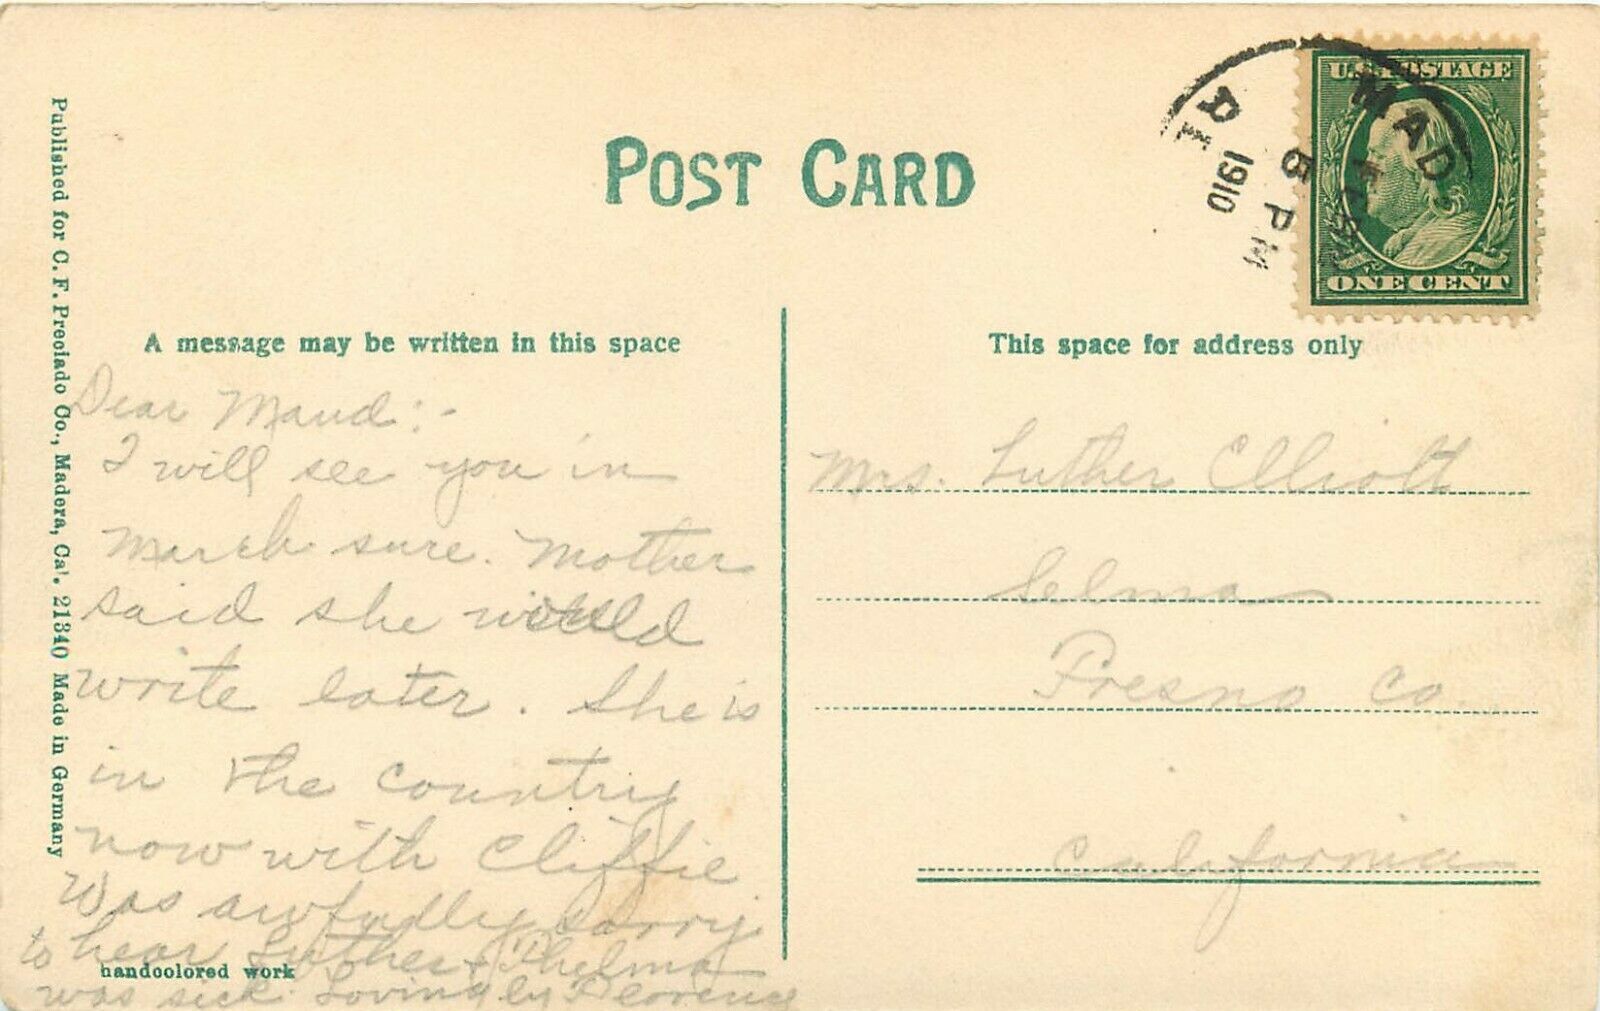 POST CARD
U.S. POSTAGE
ONE CENT
MAD
1910
PM
A message may be written in this space
This space for address only
Published for C. F. Preciado Co., Madera, Cal. 21340 Made in Germany
Dear Maud:-
I will see you in
March sure. Mother
said she would
write later. She is
in the country
now with Cliffie.
Was awfully sorry
to hear Luther & Thelma
was sick. Lovingly Florence
handcolored work
Mrs. Luther Elliott
Selma
Fresno Co.
California